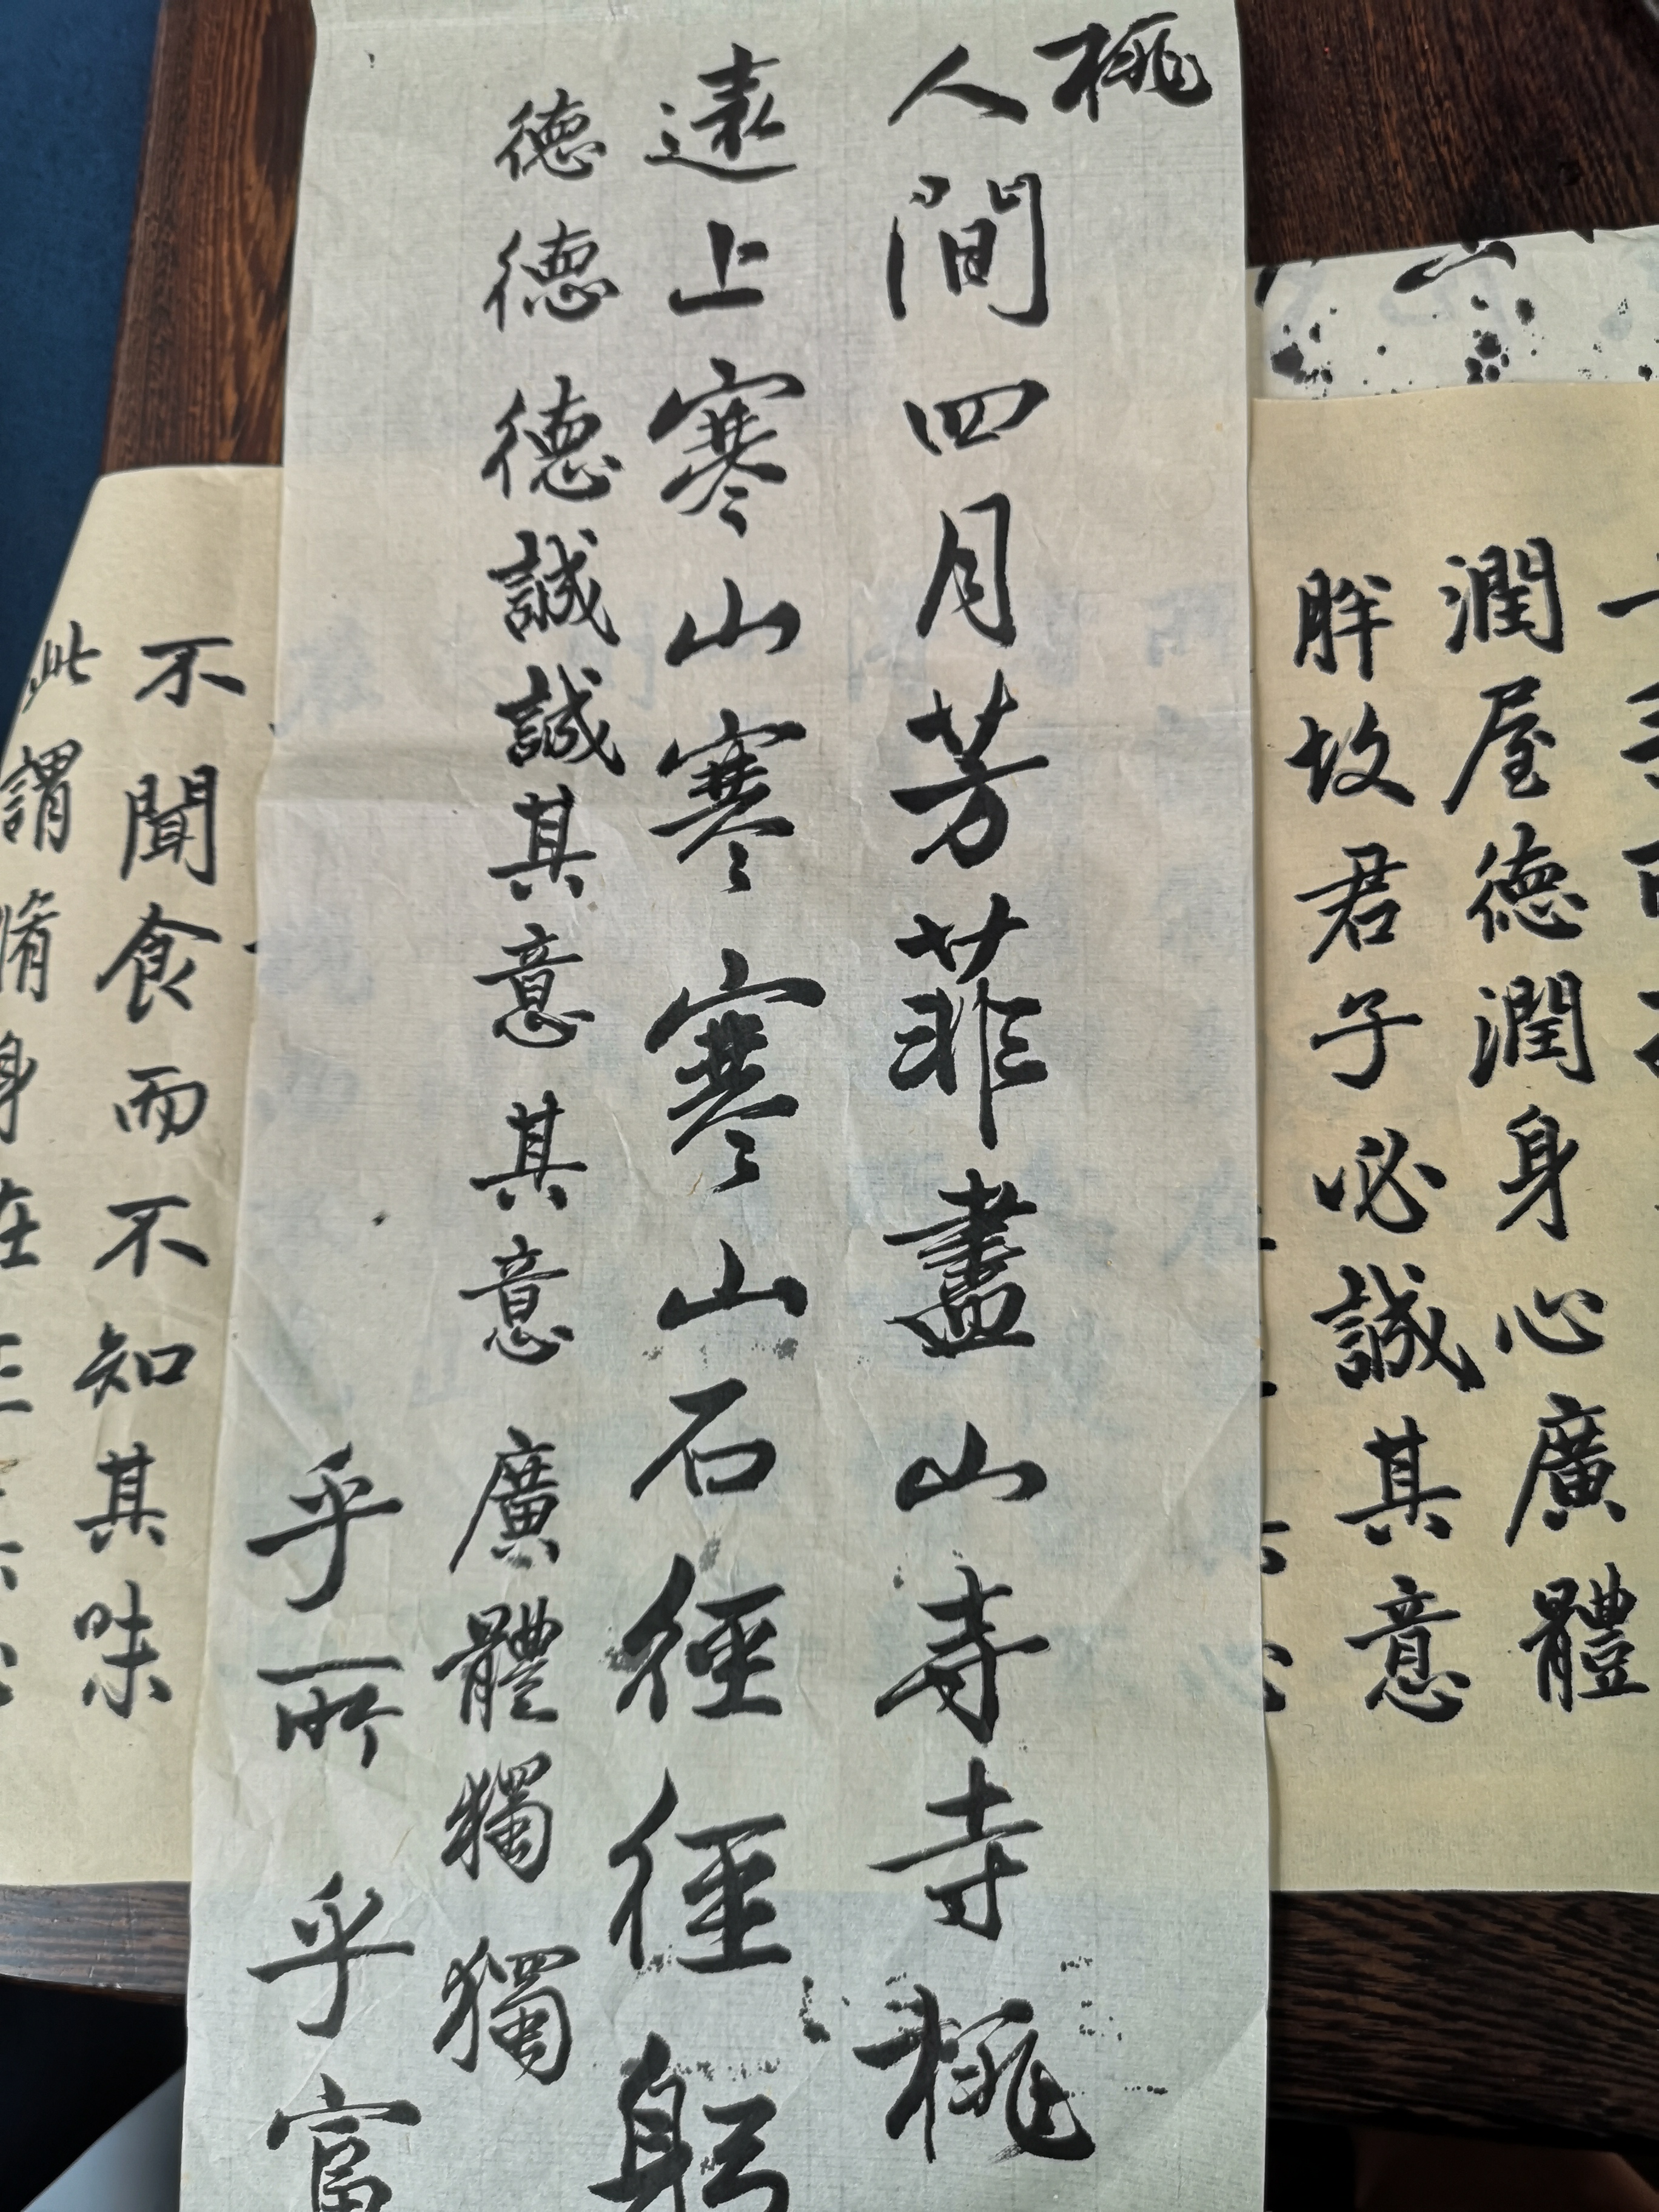 潤屋德潤身心廣體
胖故君子必誠其意
桃
人間四月芳菲盡山寺寺桃
遠上寒山寒寒山石徑徑躬
德德德誠誠其意其意廣體獨獨
乎所乎富
不聞食而不知其味
此謂脩身在正